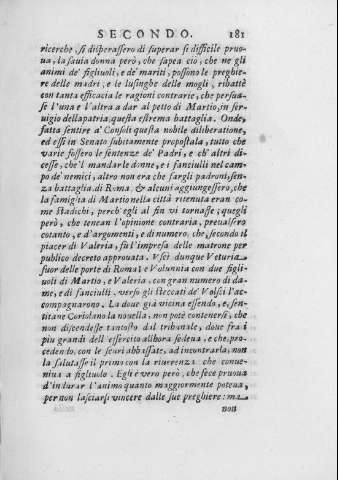 SECONDO. 181
ricerche, si disperassero di superar sì difficile pruo-
ua, la sauia donna però, che sapea ciò, che ne gli
animi de' figliuoli, e de' mariti, possono le preghie-
re delle madri; e le lusinghe delle mogli, ribattè
con tanta efficacia le ragioni contrarie, che persua-
se l'una e l'altra a dar al petto di Martio, in ser-
uigio della patria, questa estrema battaglia. Onde,
fatta sentire a' Consoli questa nobile diliberatione,
ed essi in Senato subitamente propostala, tutto che
varie fossero le sentenze de' Padri, e ch' altri di-
cesse, che'l mandar le donne, e i fanciulli nel cam-
po de' nemici, altro non era che fargli padroni, sen-
za battaglia di Roma, & alcuni aggiungessero, che
la famiglia di Martio nella città ritenuta eran co-
me Stadichi, perch' egli al fin vi tornasse; quegli
però, che tenean l'opinione contraria, preualsero
cotanto, e d'argomenti, e di numero, che, secondo il
piacer di Valeria, fù l'impresa delle matrone per
publico decreto approuata. Vsci dunque Veturia
fuor delle porte di Roma; e Volunnia con due figli-
uoli di Martio, e Valeria, con gran numero di da-
me, e di fanciulli, verso gli steccati de' Volsci l'ac-
compagnarono. La doue già vicina essendo, e, sen-
titane Coriolano la nouella, non potè contenersi, che
non discendesse tantosto dal tribunale, doue fra i
piu grandi dell'essercito allhora sedeua, e che, pro-
cedento, con le scuri abbassate, ad incontrarla, non
la salutasse il primo con la riuerenza che conue-
niua a figliuolo. Egli è vero però, che fece pruoua
d'indurar l'animo quanto maggiormente poteua,
per non lasciarsi vincere dalle sue preghiere: ma
non